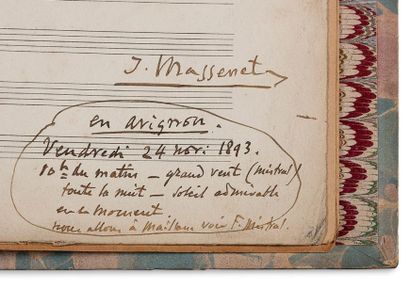 J. Massenet
en avignon.
Vendredi 24 nov. 1893.
10h du matin – grand vent (mistral)
toute la nuit – soleil admirable
en ce moment
nous allons à Maillane voir F. Mistral.